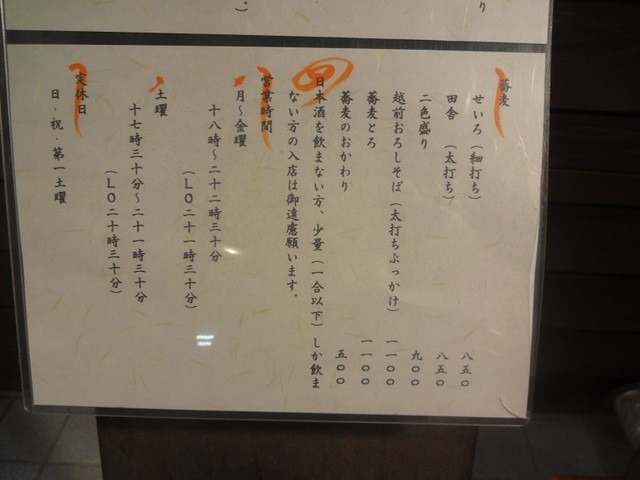 り
蕎麦
せいろ（細打ち） 八五〇
田舎　（太打ち） 八五〇
二色盛り 九〇〇
越前おろしそば（太打ちぶっかけ） 一一〇〇
蕎麦とろ 一一〇〇
蕎麦のおかわり 五〇〇
日本酒を飲まない方、少量（一合以下）しか飲ま
ない方の入店は御遠慮願います。
営業時間
月～金曜
十八時～二十二時三十分
（ＬＯ二十一時三十分）
土曜
十七時三十分～二十一時三十分
（ＬＯ二十時三十分）
定休日
日・祝・第一土曜